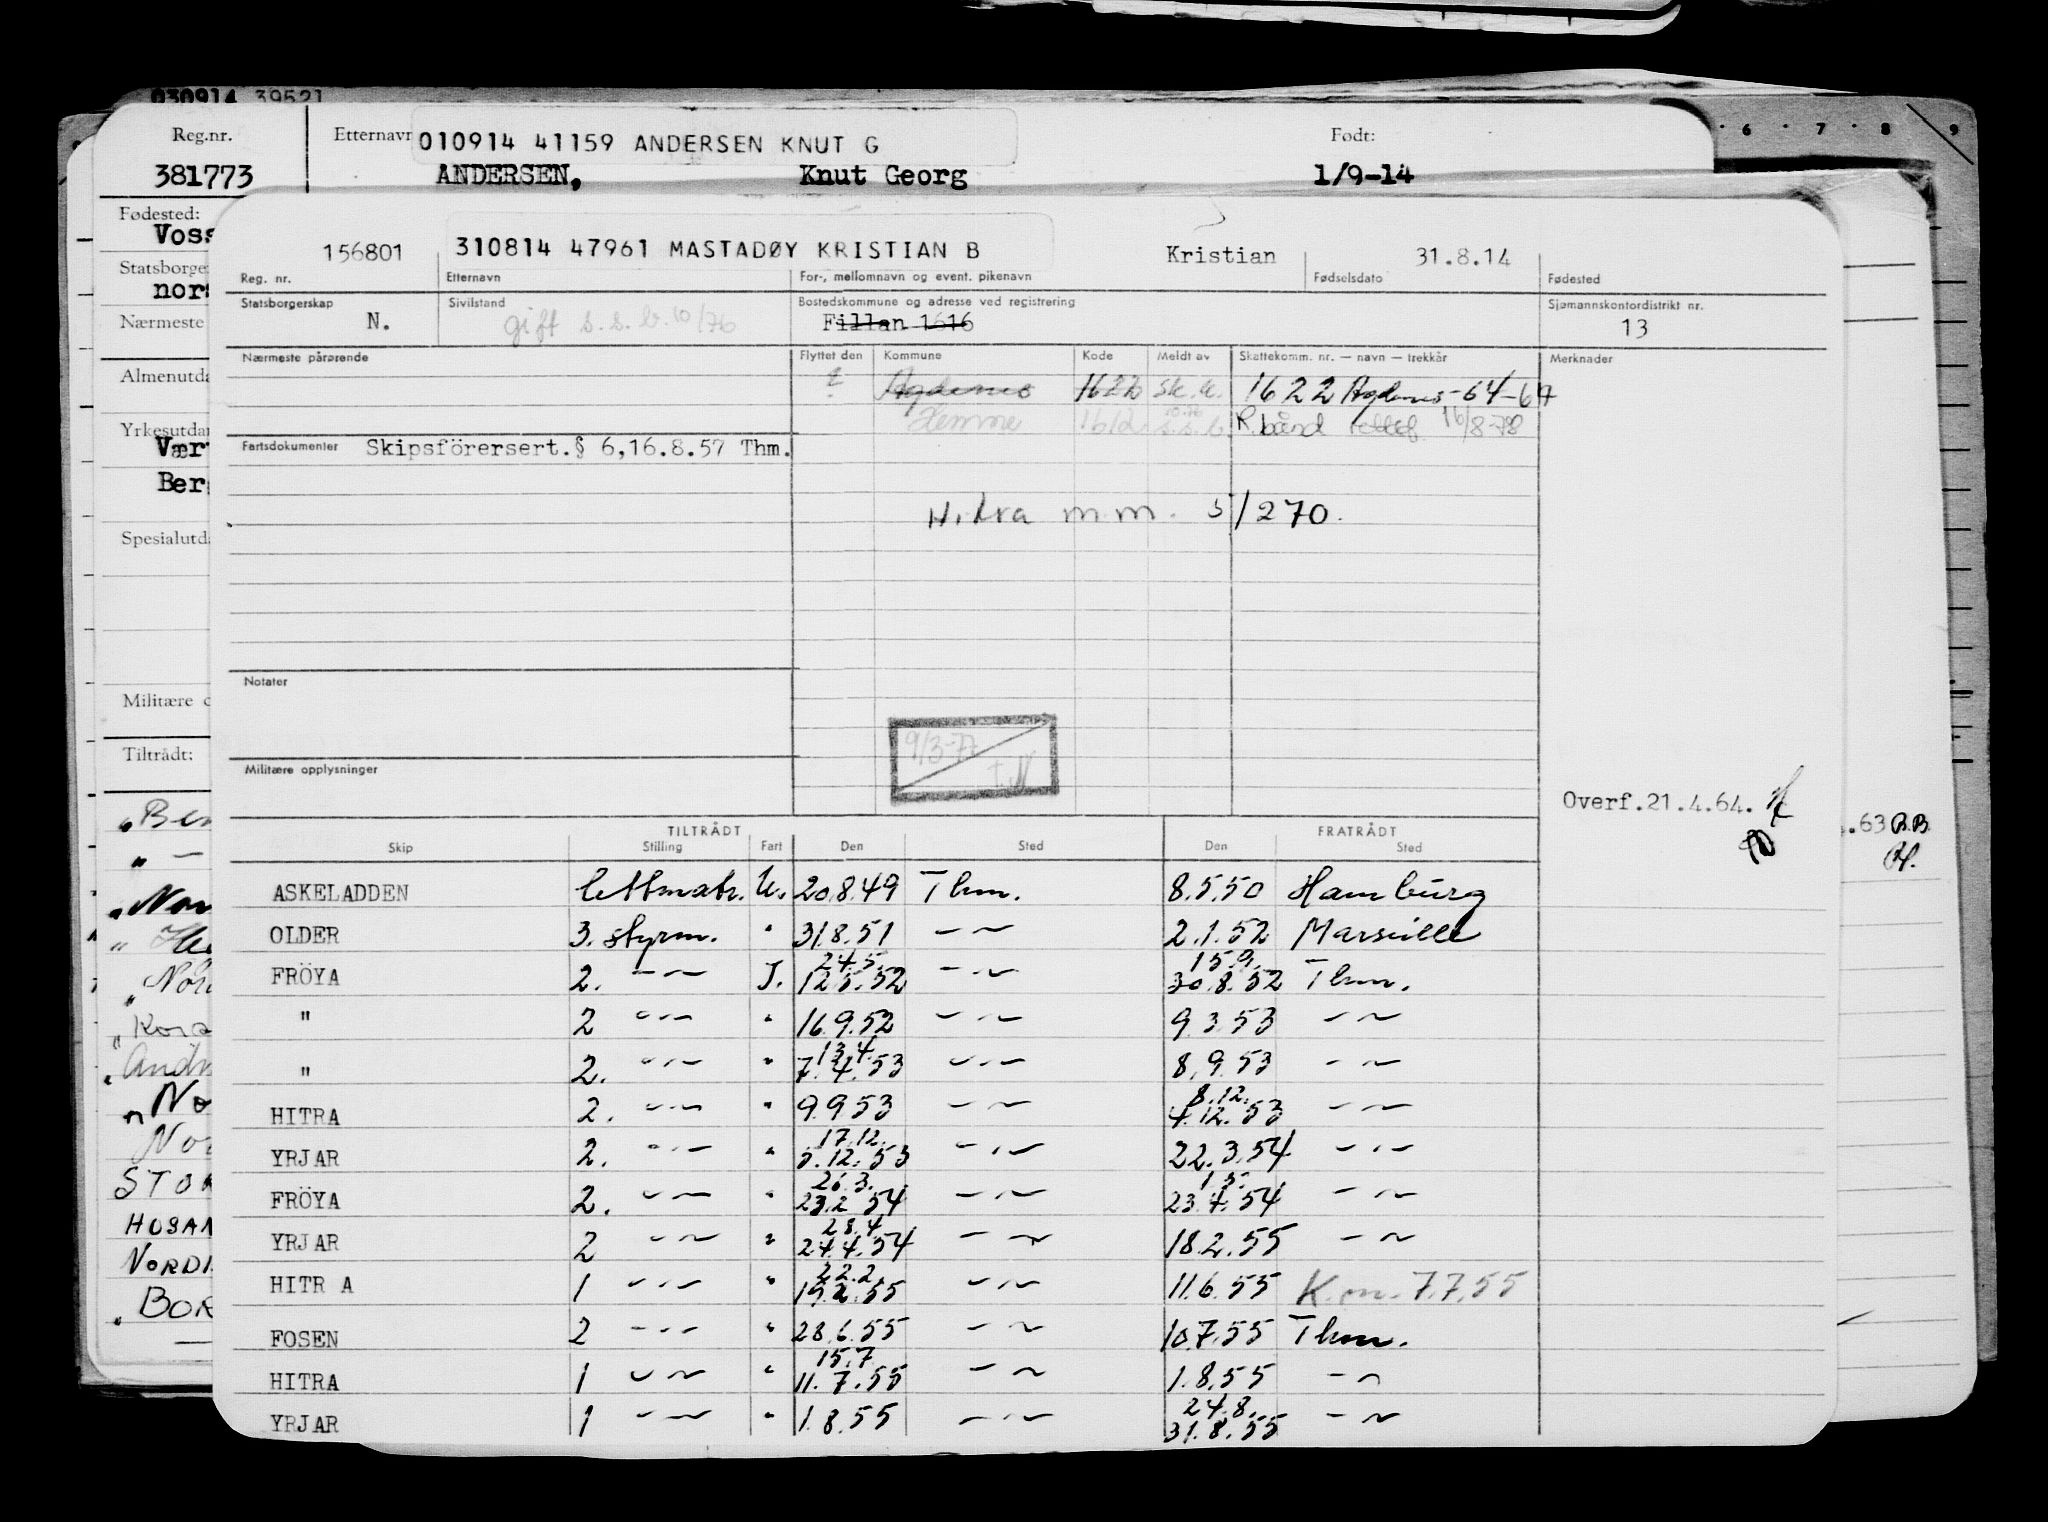 030914 39521
Reg.nr. Etternavn 010914 41159 ANDERSEN KNUT G Født:
381773 ANDERSEN, Knut Georg 1/9-14
6 7 8 9
Fødested:
Voss
Statsborge
nors
Nærmeste
Almenutda
Yrkesutdan
Vær
Ber
Spesialutda
Militære o
Tiltrådt:
156801 310814 47961 MASTADØY KRISTIAN B Kristian 31.8.14
Reg. nr. Etternavn For-, mellomnavn og event. pikenavn Fødselsdato Fødested
Statsborgerskap Sivilstand Bostedskommune og adresse ved registrering Sjømannskontordistrikt nr.
N. gift s.s.b. 10/76 Fillan 1616 13
Nærmeste pårørende Flyttet den Kommune Kode Meldt av Skattekomm. nr. — navn — trekkår Merknader
? Agdenes 1622 sk.k. 1622 Agdenes-64-67
Hemne 1612 10.76 s.s.b. R.bånd rettet 16/8-78
Fartsdokumenter Skipsförersert.§ 6,16.8.57 Thm.
Hitra m.m. 5/270.
Notater
9/3-77
Militære opplysninger
Overf.21.4.64.
.63 B.B.
TILTRÅDT FRATRÅDT
Skip Stilling Fart Den Sted Den Sted
ASKELADDEN lettmatr. U. 20.8.49 Thm. 8.5.50 Hamburg
OLDER 3. styrm. " 31.8.51 —"— 2.1.52 Marseille
24.5. 15.9.
FRÖYA 2. —"— I. 12.5.52 —"— 30.8.52 Thm.
" 2 —"— " 16.9.52 —"— 9.3.53 —"—
13.4.
" 2. —"— " 7.4.53 —"— 8.9.53 —"—
8.12.
HITRA 2. —"— " 9.9.53 —"— 4.12.53 —"—
17.12.
YRJAR 2. —"— " 5.12.53 —"— 22.3.54 —"—
26.3. 1.5.
FRÖYA 2. —"— " 23.2.54 —"— 23.4.54 —"—
28.4.
YRJAR 2 —"— " 24.4.54 —"— 18.2.55 —"—
22.2.
HITR A 1 —"— " 19.2.55 —"— 11.6.55 K.m. 7.7.55
FOSEN 2 —"— " 28.6.55 —"— 10.7.55 Thm.
15.7
HITRA 1 —"— " 11.7.55 —"— 1.8.55 —"—
24.8.
YRJAR 1 —"— " 1.8.55 —"— 31.8.55 —"—
Ber
Nor
Kora
Andr
No
Nor
STOR
HOSAN
NORDI
BOR